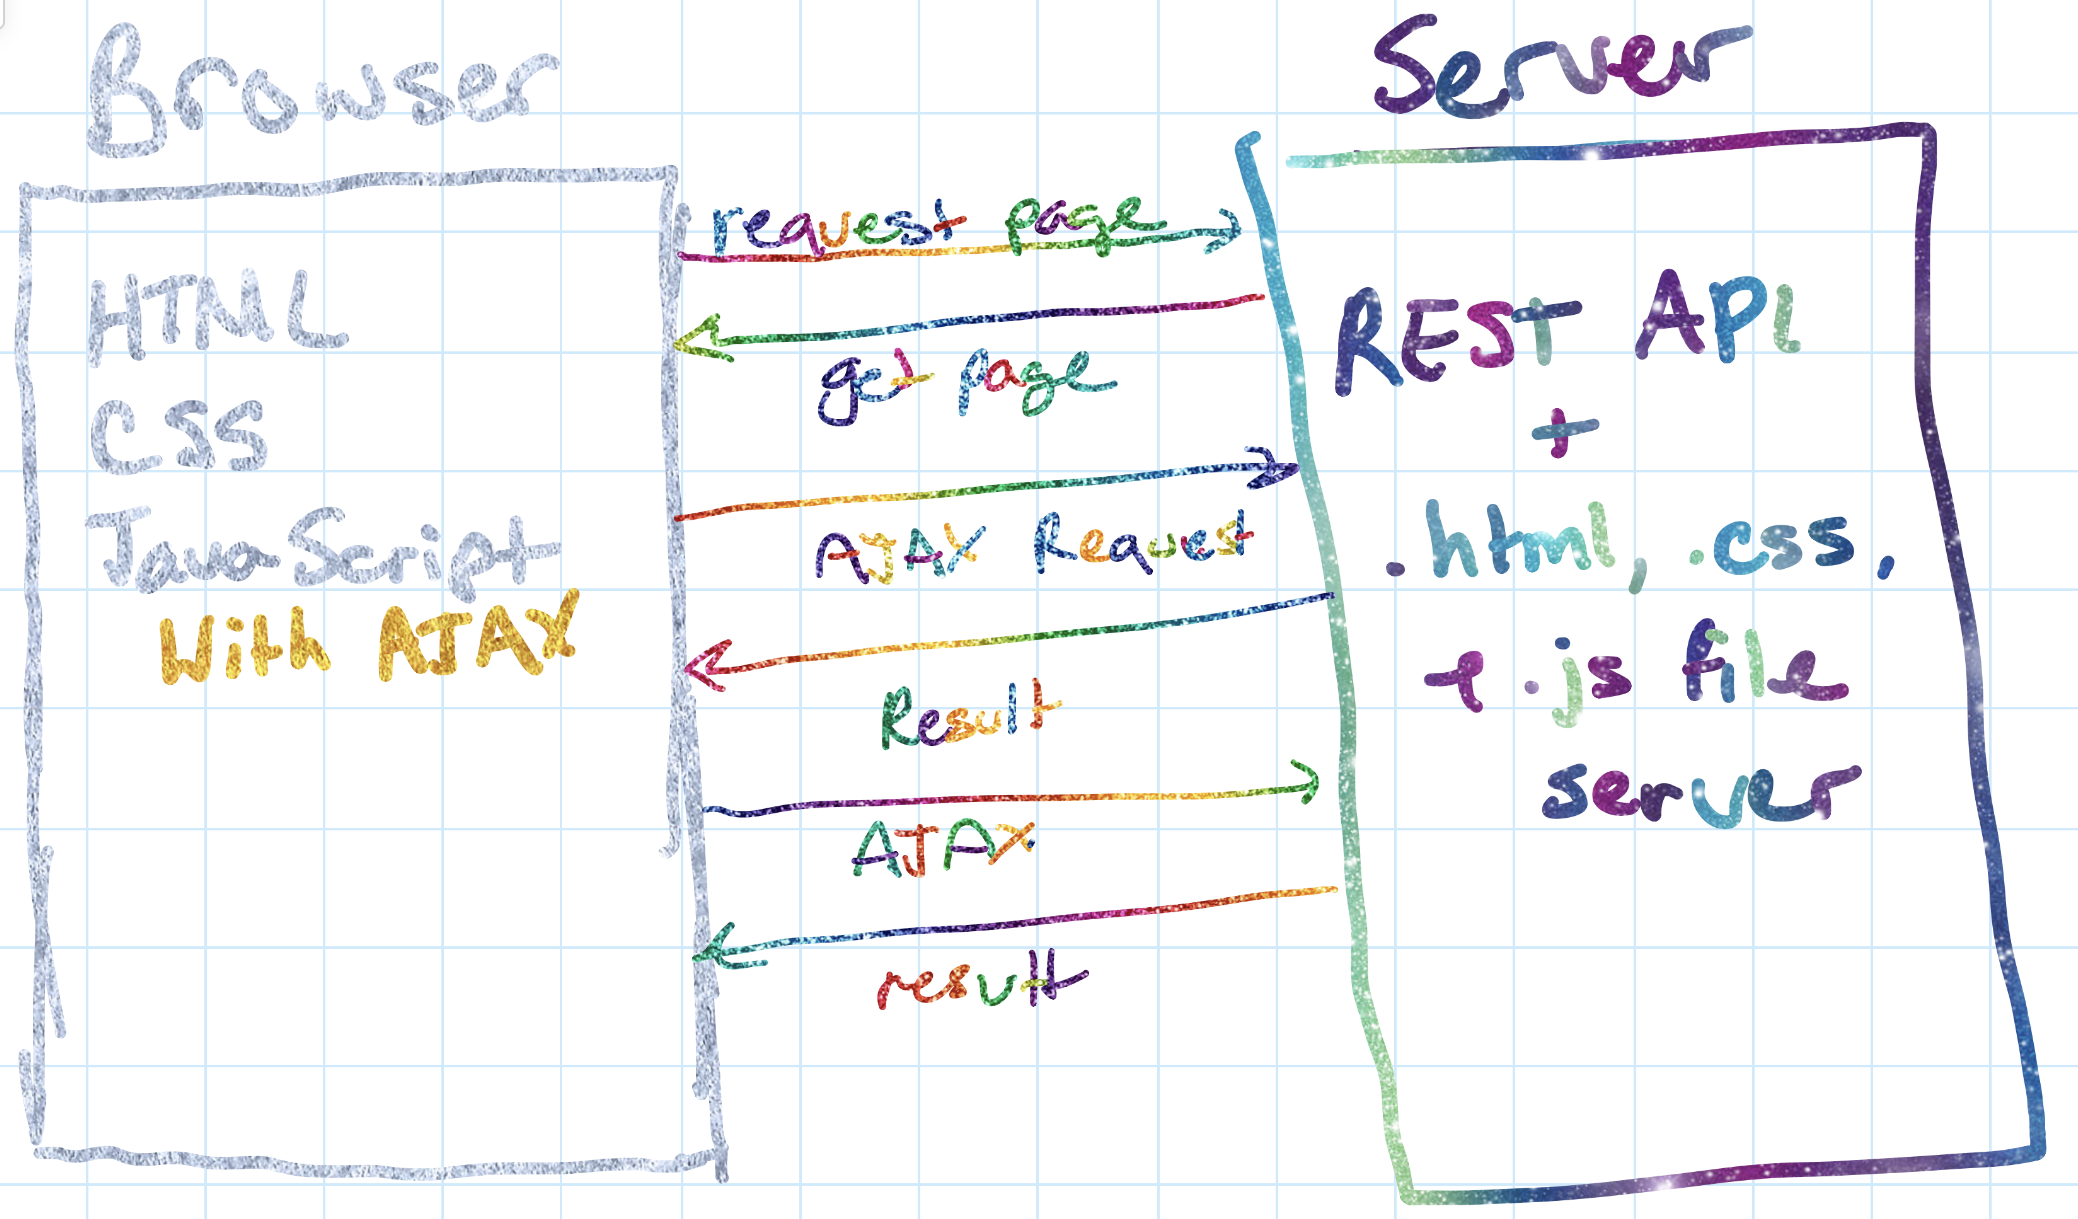 Browser
HTML
CSS
JavaScript
With AJAX
request page
get page
AJAX Request
Result
AJAX
result
Server
REST API
+
.html, .css,
+ .js file
server